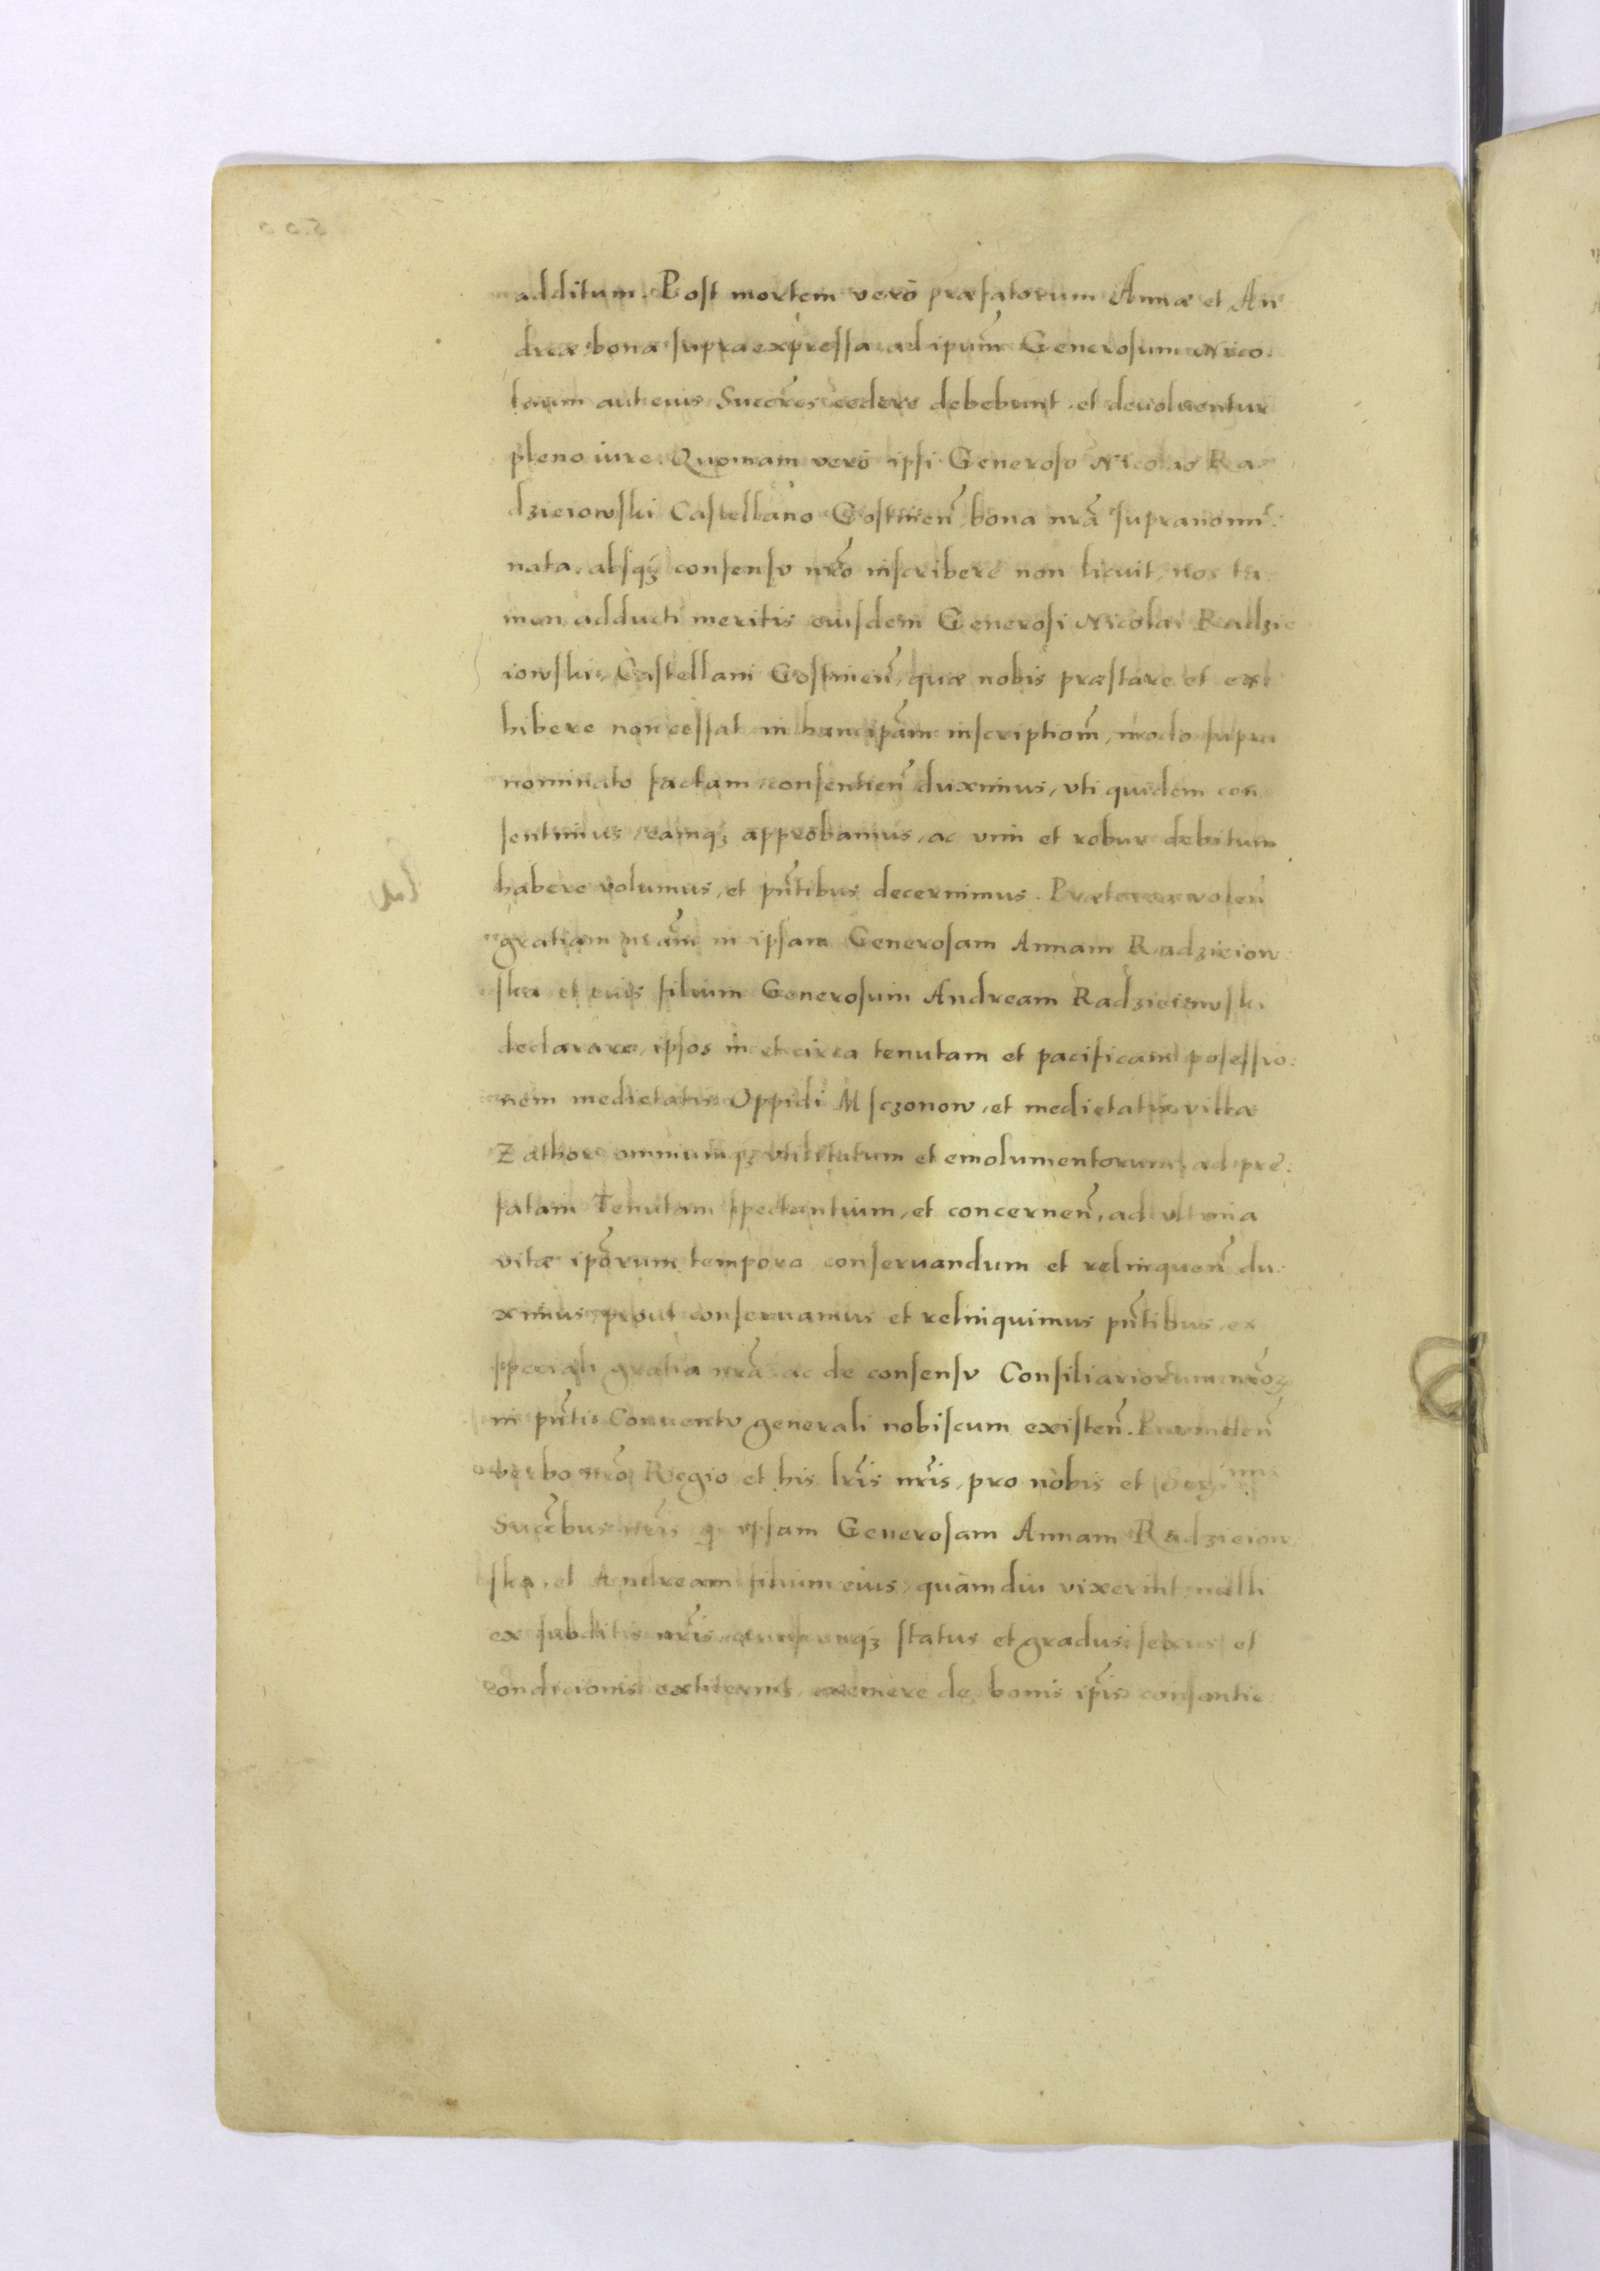 additum. Post mortem vero præfatorum Annæ et An
dreæ bona supraexpressa ad ipum̃ Generosum Nico
laum aut eius Succr̃es cedere debebunt et deuoluentur
pleno iure. Quoniam vero ipsi Generoso Nicolao Ra
dzieiowski Castellano Gostinen̄ bona nr̃a supranomi
nata, absq₃ consensu nr̃o inscribere non licuit, nos ta
men adducti meritis eiusdem Generosi Nicolai Radzie
iowski, Castellani Gostinen̄, quæ nobis præstare et ex
hibere non cessat in hanc ip̃am inscriptiom̃, modo supra
nominato factam consentien̄ duximus, vti quidem con
sentimus eamq₃ approbamus, ac vim et robur debitum
habere volumus, et pn̄tibus decernimus. Præterea volen̄
gratiam nr̃am in ipsam Generosam Annam Radzieiow
ska et eius filium Generosum Andream Radzieiowski
declarare, ipsos in et circa tenutam et pacificam posessio
nem medietatis Oppidi Msczonow, et medietatis villæ
Zathor omniumq₃ vtilitatum et emolumentorum, ad pre
fatam Tenutam spectantium, et concernen̄, ad vltima
vitæ ip̃orum tempora conseruandum et relinquen̄ du
ximus, prout conseruamus et relinquimus pn̄tibus, ex
speciali gratia nr̃a ac de consensu Consiliariorum nr̃o₃
in pn̄ti Conuentu generali nobiscum existen̄.
verbo nr̃o Regio et his lr̃is nr̃is, pro nobis et Ser
Succ̃bus nr̃is q ipsam Generosam Annam Radzieiow
ska, et Andream filium eius, quàm diu vixerint nulli
ex subditis nr̃is cuiuscunq₃ status et gradus, sexus et
condicionis extiterint, eximere de bonis ip̃is consentie